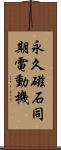 永久磁石同
期電動機